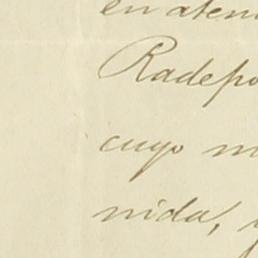 en aten
Radepo
cuyo m
nida,